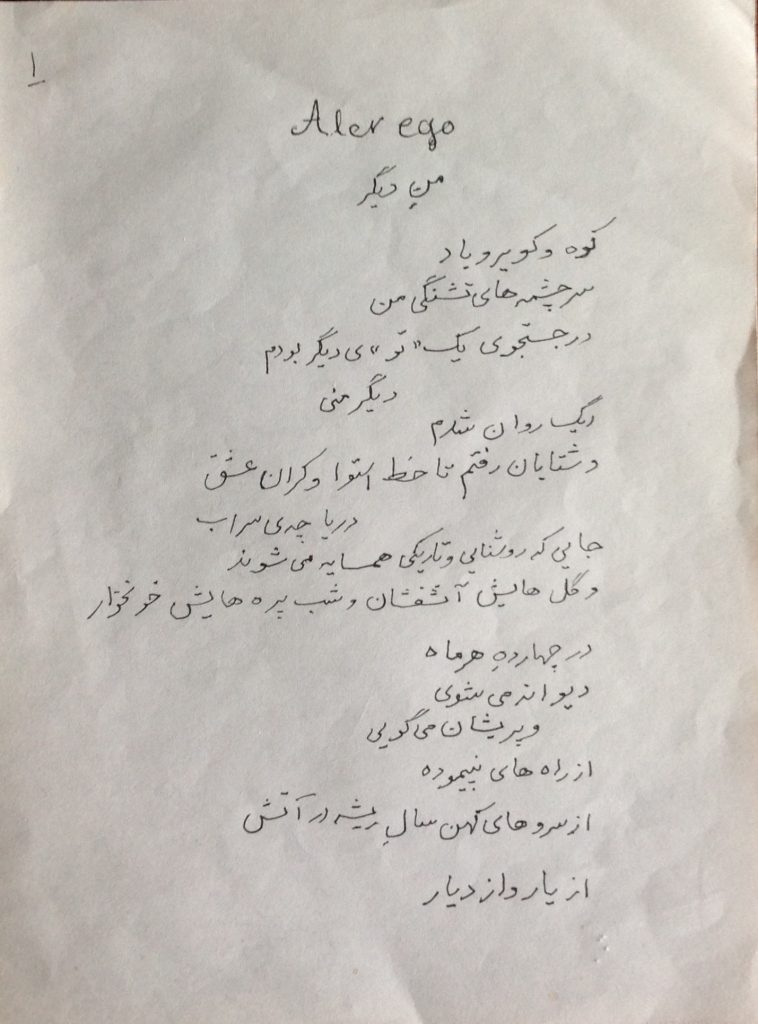 ۱
Aler ego
منِ دیگر
کوه و کویر و یاد
سرچشمه های تشنگی من
در جستجوی یک «تو»ی دیگر بودم
دیگر منی
ریگ روان شدم
و شتابان رفتم تا خط استوا و کران عشق
دریاچه ی سراب
جایی که روشنایی و تاریکی همسایه می شوند
و گل هایش آتشفشان و شب پره هایش خونخوار
در چهاردهِ هر ماه
دیوانه می شوی
و پریشان می گویی
از راه های نپیموده
از سرو های کهن سالِ ریشه در آتش
از یار و از دیار